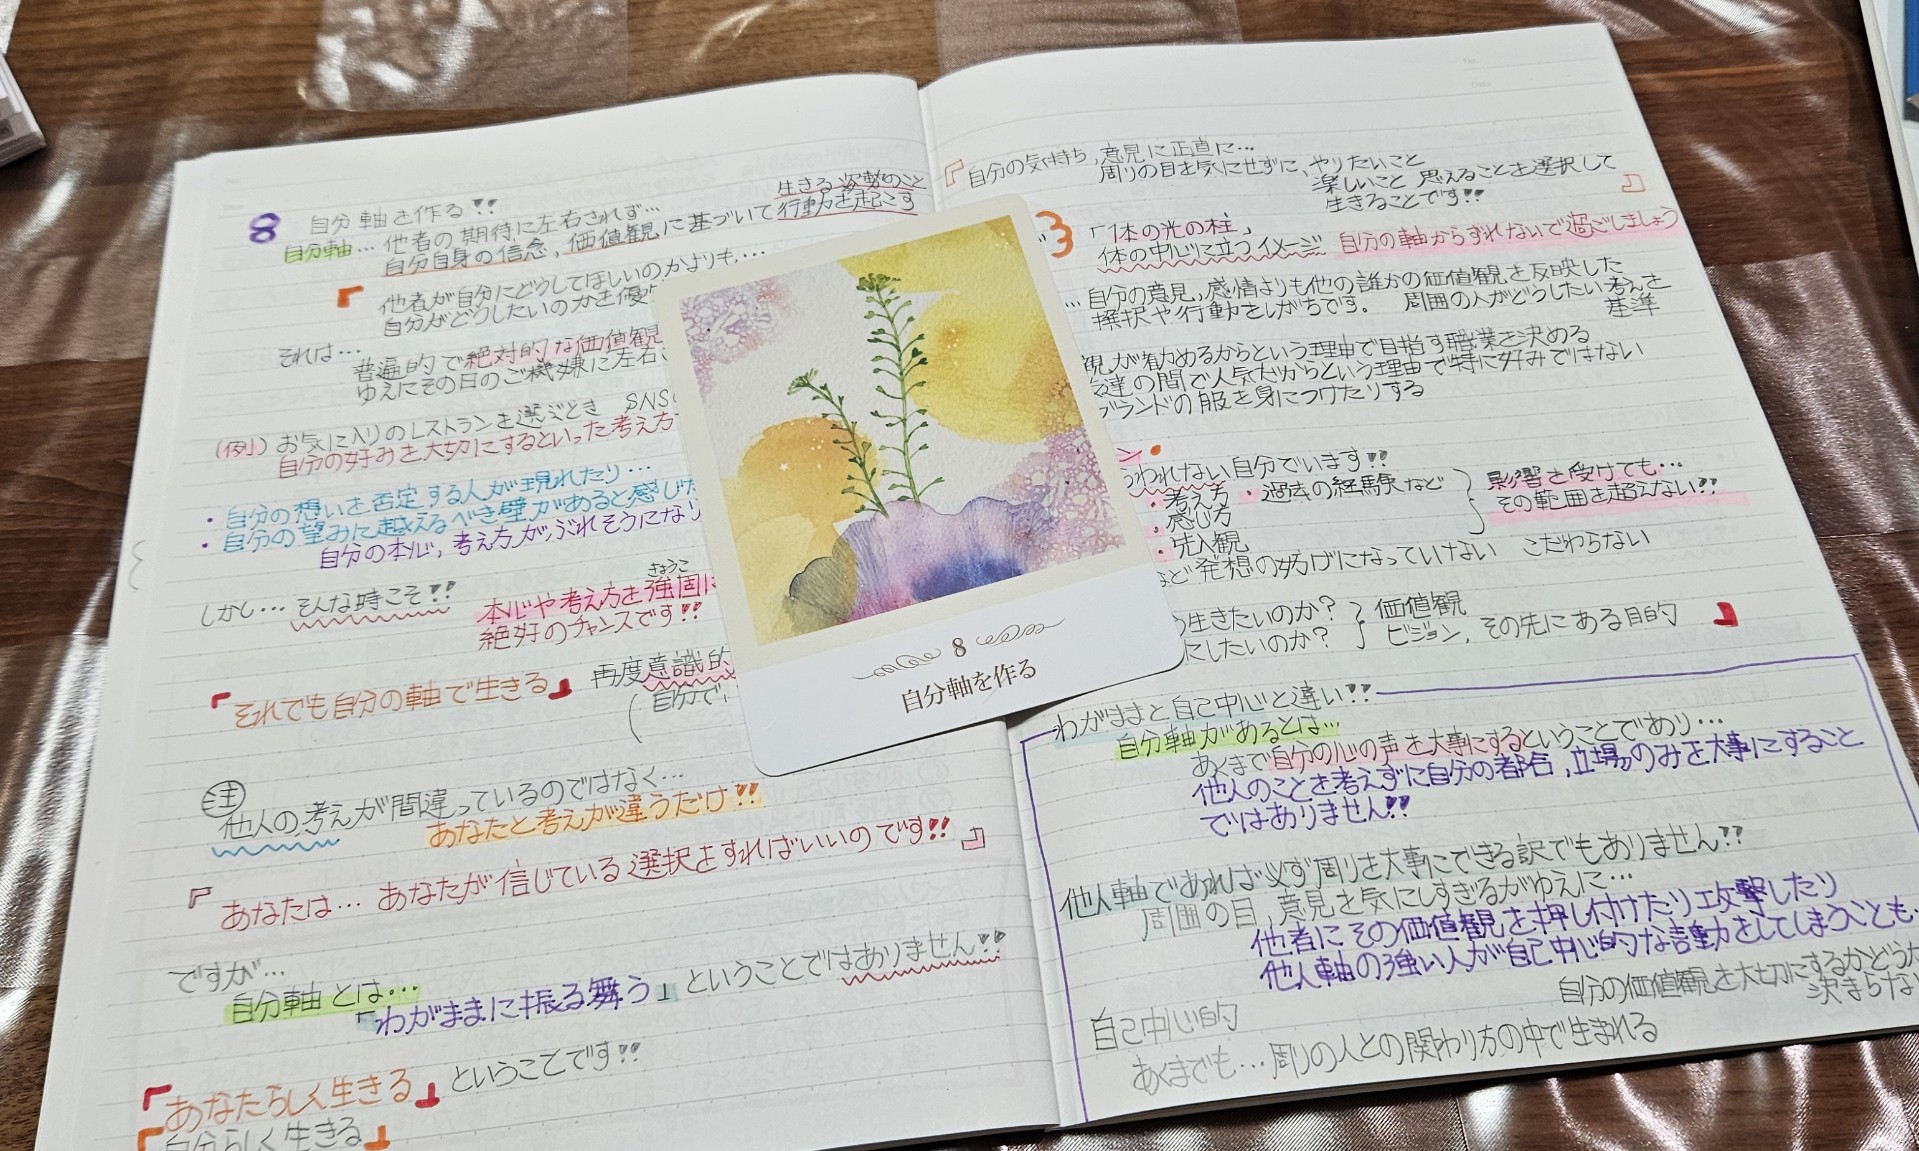 8 自分軸を作る!!
生きる姿勢のこと
自分軸…他者の期待に左右されず…
自分自身の信念、価値観に基づいて行動を起こす
『他者が自分にどうしてほしいのかよりも、…
自分がどうしたいのかを優
それは…
普遍的で絶対的な価値観
ゆえにその日のご機嫌に左右
(例) お気に入りのレストランを選ぶとき SNS
自分の好みを大切にするといった考え方
・自分の想いを否定する人が現れたり…
・自分の望みに越えるべき壁があると感じた
自分の本心、考え方がぶれそうになり
しかし…そんな時こそ!!
きょうこ
本心や考え方を強固に
絶好のチャンスです!!
『それでも自分の軸で生きる』 再度意識的
(自分で
注 他人の考えが間違っているのではなく…
あなたと考えが違うだけ!!
『あなたは…あなたが信じている選択をすればいいのです!!』
ですが…
自分軸とは…
「わがままに振る舞う」ということではありません!!
『あなたらしく生きる』ということです!!
『自分らしく生きる』
『自分の気持ち、意見に正直に…
周りの目を気にせずに、やりたいこと
楽しいこと 思えることを選択して
生きることです!!』
3 「1本の光の柱」
体の中心に立つイメージ 自分の軸からずれないで過ごしましょう
…自分の意見、感情よりも他の誰かの価値観を反映した
択や行動をしがちです。 周囲の人がどうしたい考えを
基準
親が勧めるからという理由で目指す職業を決める
達の間で人気だからという理由で特に好みではない
ブランドの服を身につけたりする
われない自分でいます!!
・考え方 ・過去の経験など
・感じ方
・先入観
影響を受けても…
その範囲を超えない!!
など発想の妨げになっていけない こだわらない
う生きたいのか?
にしたいのか?
価値観
ビジョン、その先にある目的』
わがままと自己中心と違い!!
自分軸があるとは…
あくまで自分の心の声を大事にするということであり…
他人のことを考えずに自分の都合、立場のみを大事にすること
ではありません!!
他人軸であれば必ず周りを大事にできる訳でもありません!!
周囲の目、意見を気にしすぎるがゆえに…
他者にその価値観を押し付けたり攻撃したり
他人軸の強い人が自己中心的な言動をしてしまうことも
自分の価値観を大切にするかどう
決まらな
自己中心的
あくまでも…周りの人との関わり方の中で生まれる
8
自分軸を作る